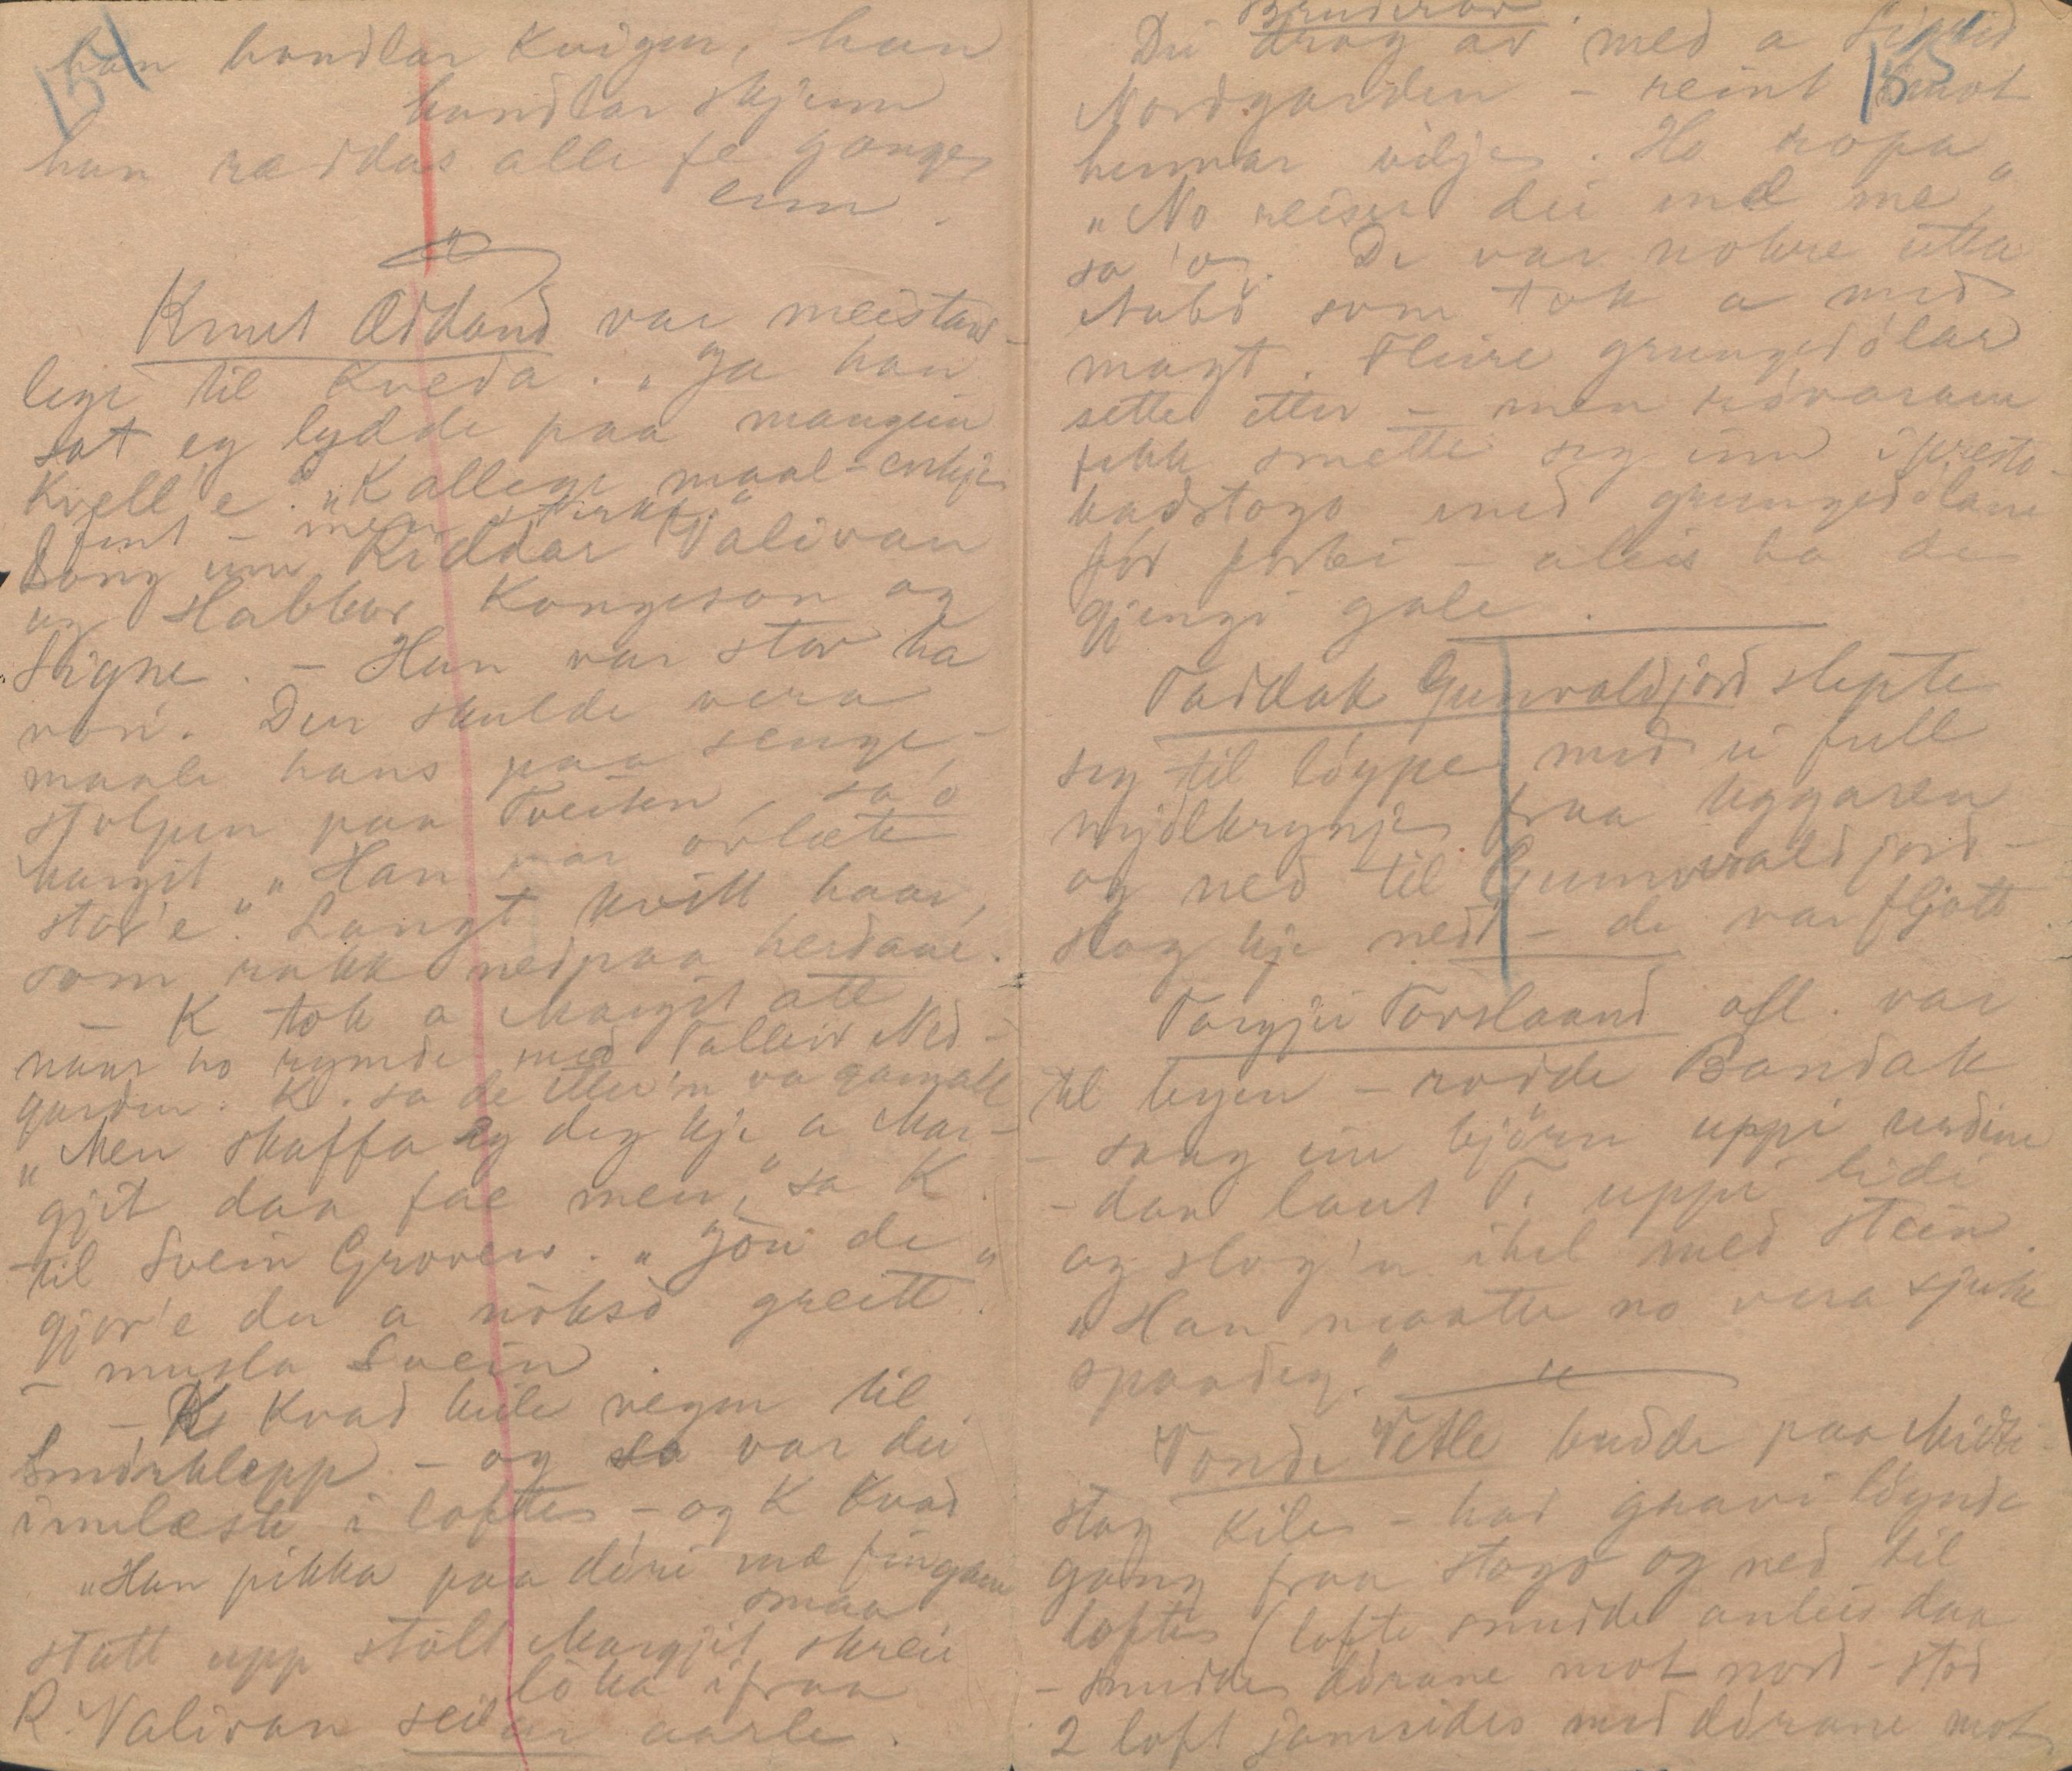 154
han handlar Kvigur, han
handlar skjinn
han ræddas alle fe ganges
einn.
Knut Øddand var meistar-
lege til Kveda. "Ja han
sat eg lydde paa mangein
Kvell'e. "Kallege maal – enkje
fint – men sterkt."
Song um Riddar Valivan
og Habbor Kongeson og
Signe. – Han var stor ha
von. Der skulde vera
maale hans paa senge-
stolpen paa Tveiten, sa'o
Margit "Han var ovlæte
stor'e." Langt kvitt haar,
som rakk nedpaa herdane.
– K tok a Margit att
naar ho rymde med Talleiv Ned-
garden. K. sa de etter'n va gamall
"Men skaffa eg deg kje a Mar-
gjit daa fae men," sa K.
til Svein Groven. "Jou de
gjor'e du a nokso greitt."
– musla Svein.
– K. Kvad heile vegen til
Smørklepp – og so var dei
innlæste i lofte – og K Kvad
"Han pikka paa döri mæ fingane
smaa
statt upp stolt Margjit skrei
loka ifraa
R. Valivan seilar aarle.
155
Bruderov.
Dei drog av med a Sigrid
Nordgarden – reint imot
hennar vilje. Ho ropa
"No reiser dei med me"
sa 'o. De var nokre utta
Aabø som tok a med
magt. Fleire grungedølar
sette etter – men røvarane
fekk smette seg inn i preste-
badstogo med grungedølane
for forbi – aleis ha de
gjengi gale.
Taddak Gunvaldjord slepte
seg til løype med ei full
mjølkrynje fraa Uggaren
og ned til Gunnvaldjord –
slog kje ned – de var fljott
Torgjei Torslaand afl. var
til byen – rodde Bandak
– saag ein bjørn uppi urdine
– daa laut T. uppi lidi
og slog'n ihel med stein.
"Han maatte no vera sjuk
spaadeg."
Vonde Vetle budde paa Midt-
stog Kile – had gravi løynde
gang fraa stogo og ned til
lofte (lofte snudde anleis daa
– snudde dørane mot nord – stod
2 loft jamsides med dørane mot